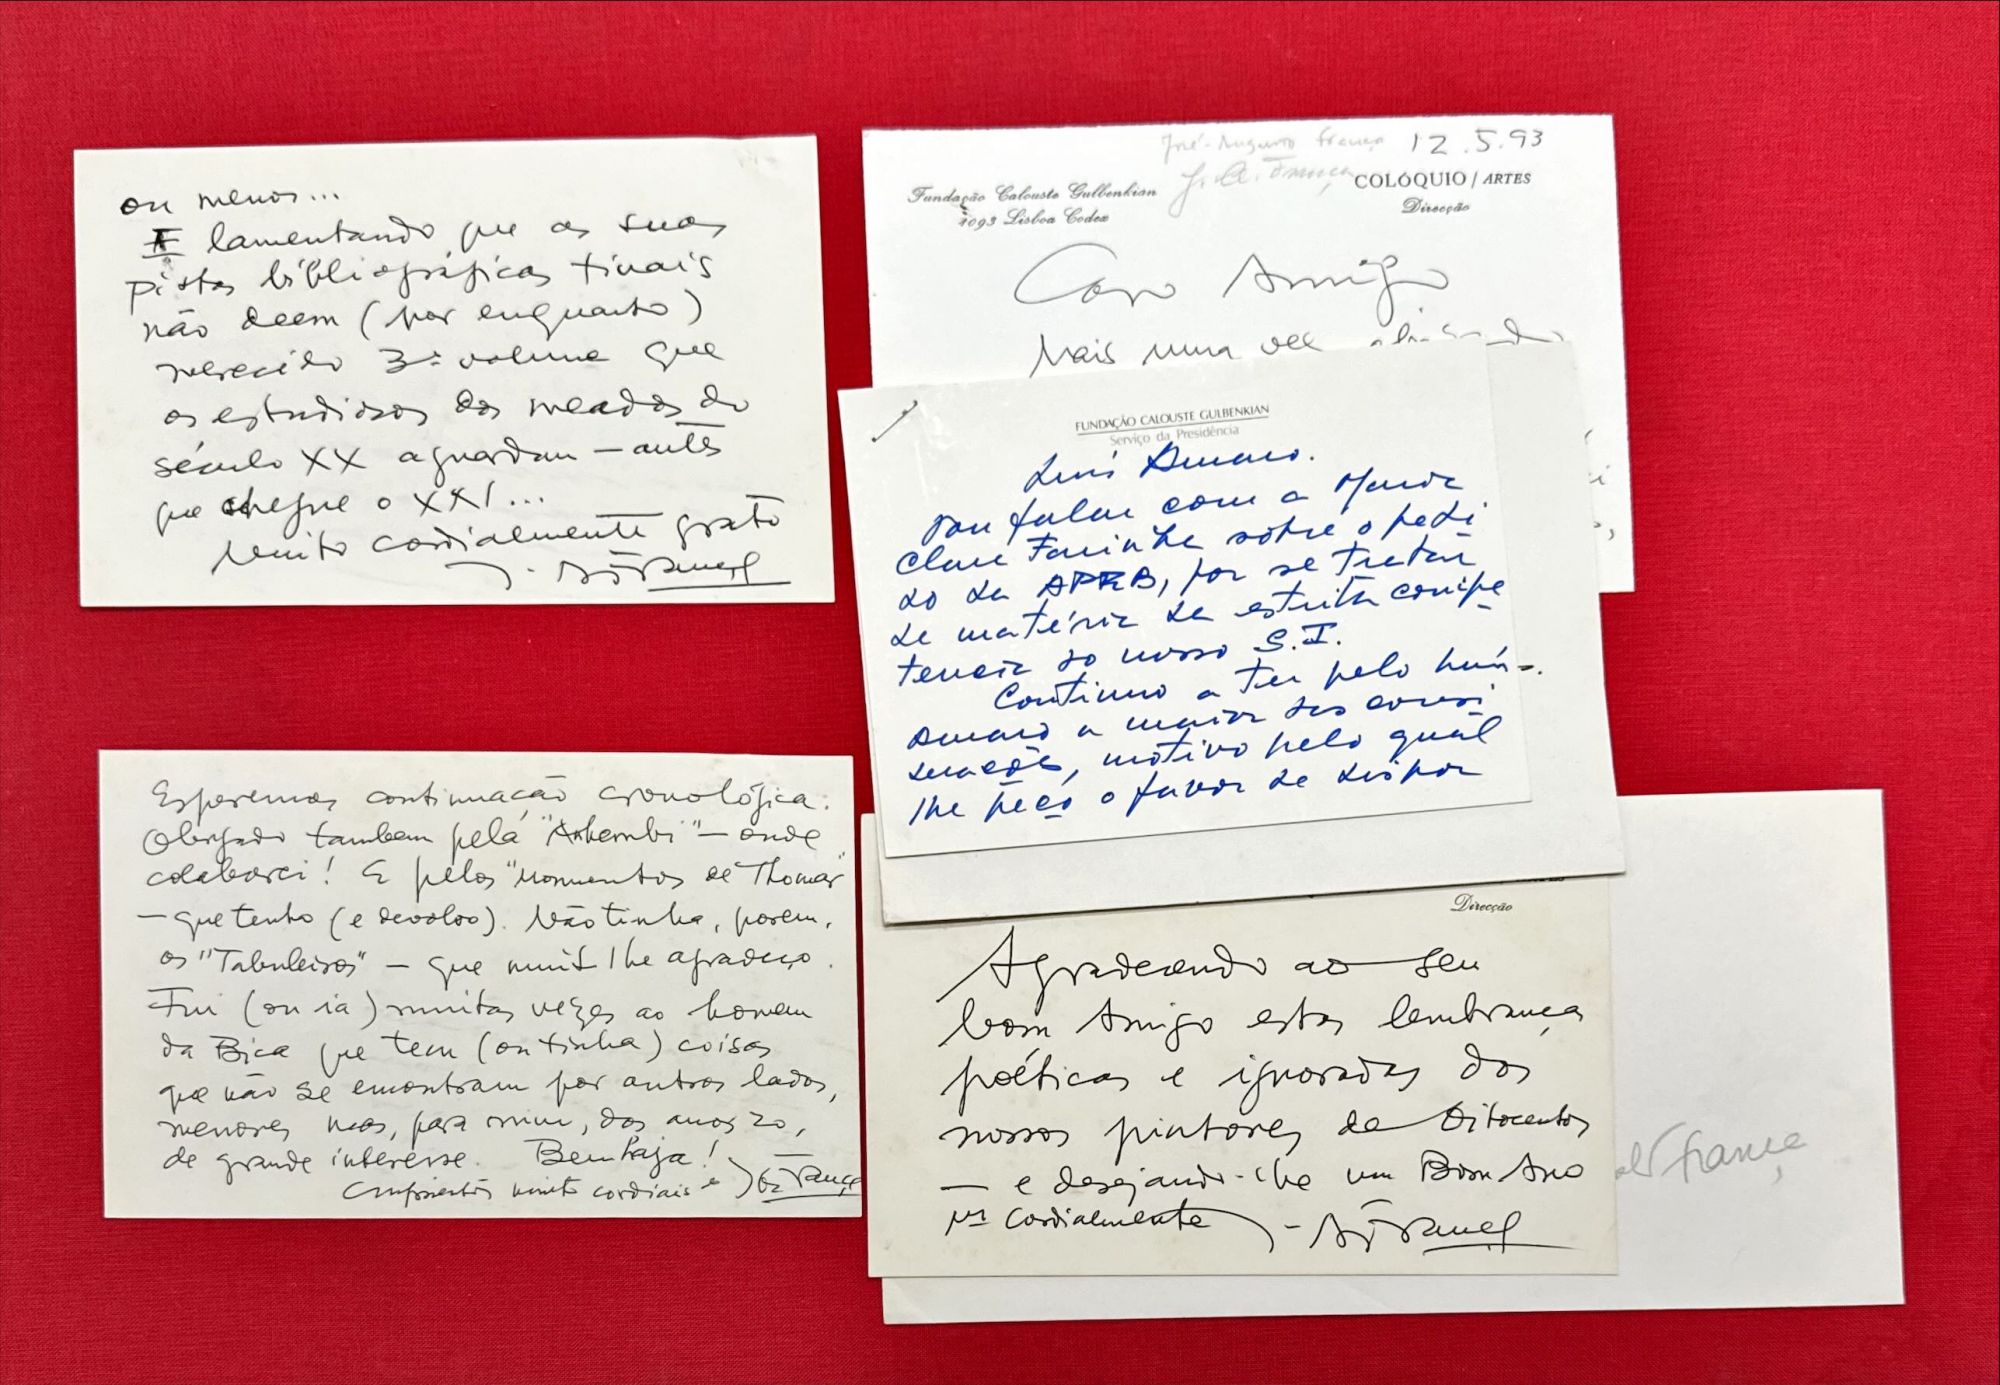 ou menos...
E lamentando que as suas
pistas bibliográficas finais
não deem (por enquanto)
merecido 3º volume que
os estudiosos dos meados do
século XX aguardam — antes
que chegue o XXI...
Muito cordialmente grato
J.-A. França
José-Augusto França 12.5.93
J. A. França
Fundação Calouste Gulbenkian
1093 Lisboa Codex
COLÓQUIO / ARTES
Direcção
Caro Amigo
Mais uma vez
FUNDAÇÃO CALOUSTE GULBENKIAN
Serviço da Presidência
Luís Amaro.
Vou falar com a Maria
Clara Farinha sobre o pedi
do da APRB, por se tratar
de matéria da estrita compe
tencia do nosso S.I.
Continuo a ter pelo Luís
Amaro a maior das consi
derações, motivo pelo qual
lhe peço o favor de dispor
Esperemos continuação cronológica.
Obrigado tambem pela "Anhembi" — onde
colaborei! E pelos "Monumentos de Thomar"
— que tenho (e devolvo). Não tinha, porem,
os "Tabuleiros" — que muito lhe agradeço.
Fui (ou ia) muitas vezes ao homem
da Bica que tem (ou tinha) coisas
que não se encontram por outros lados,
menores mas, para mim, dos anos 20,
de grande interesse. Bem haja!
Cumprimentos muito cordiais
J.-A. França
Direcção
Agradecendo ao seu
bom Amigo estas lembranças
poéticas e ignoradas dos
nossos pintores de Oitocentos
— e desejando-lhe um Bom Ano
Mº cordialmente J.-A. França
França